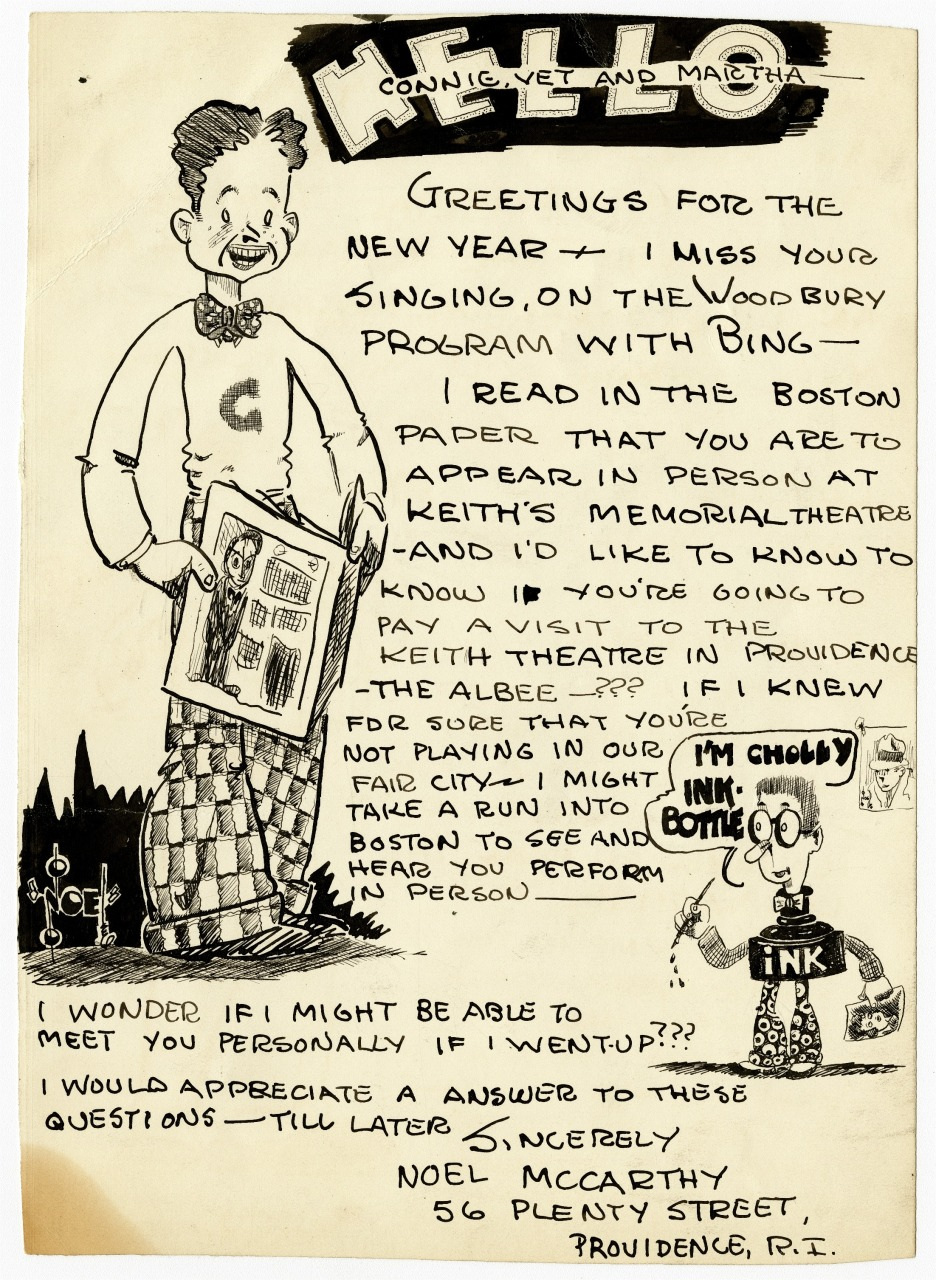 HELLO
CONNIE, VET AND MARTHA —
GREETINGS FOR THE
NEW YEAR — I MISS YOUR
SINGING, ON THE WOODBURY
PROGRAM WITH BING —
I READ IN THE BOSTON
PAPER THAT YOU ARE TO
APPEAR IN PERSON AT
KEITH'S MEMORIAL THEATRE
-AND I'D LIKE TO KNOW TO
KNOW IF YOU'RE GOING TO
PAY A VISIT TO THE
KEITH THEATRE IN PROVIDENCE
-THE ALBEE —??? IF I KNEW
FOR SURE THAT YOU'RE
NOT PLAYING IN OUR
FAIR CITY — I MIGHT
TAKE A RUN INTO
BOSTON TO SEE AND
HEAR YOU PERFORM
IN PERSON ———
I'M CHOLLY
INK-
BOTTLE
INK
C
NOEL
I WONDER IF I MIGHT BE ABLE TO
MEET YOU PERSONALLY IF I WENT-UP???
I WOULD APPRECIATE A ANSWER TO THESE
QUESTIONS — TILL LATER
SINCERELY
NOEL MCCARTHY
56 PLENTY STREET,
PROVIDENCE, R.I.